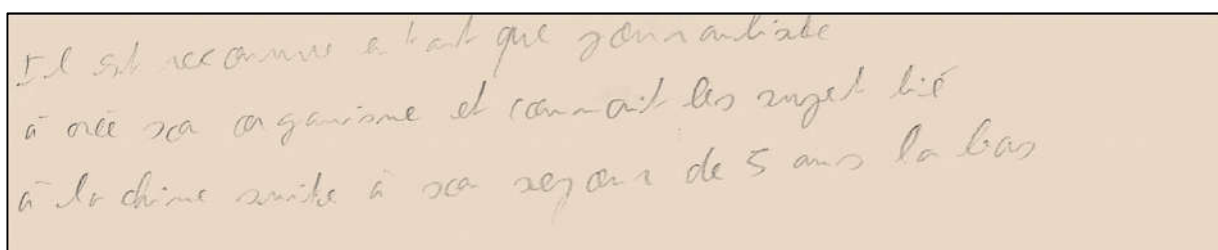 Il est reconnue a tant que journaliste
à crée son organisme et connait les sujet lié
à la chine suite à son sejour de 5 ans la bas